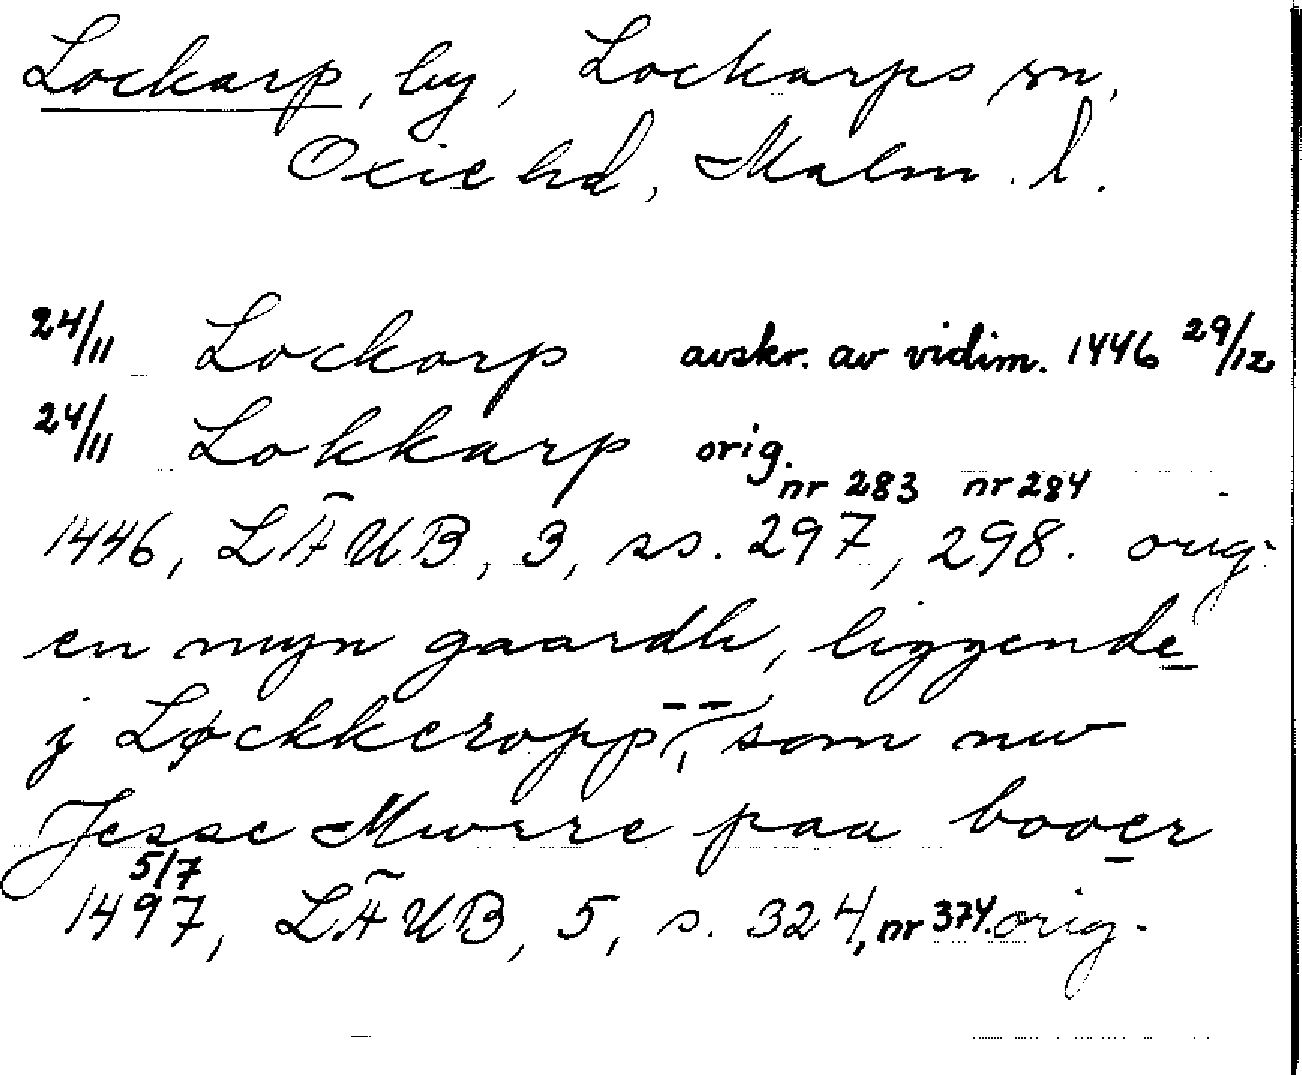 Lockarp, by, Lockarps sn,
Oxie hd, Malm. l.
24/11 Lockorp avskr. av vidim. 1446 29/12
24/11 Lokkarp orig.
nr 283 nr 284
1446, LÄUB, 3, ss. 297, 298. orig.
en myn gaardh, liggende
j Løckkeropp --, som nw
Jesse Mwrre paa booer
5/7
1497, LÄUB, 5, s. 324, nr 374. orig.